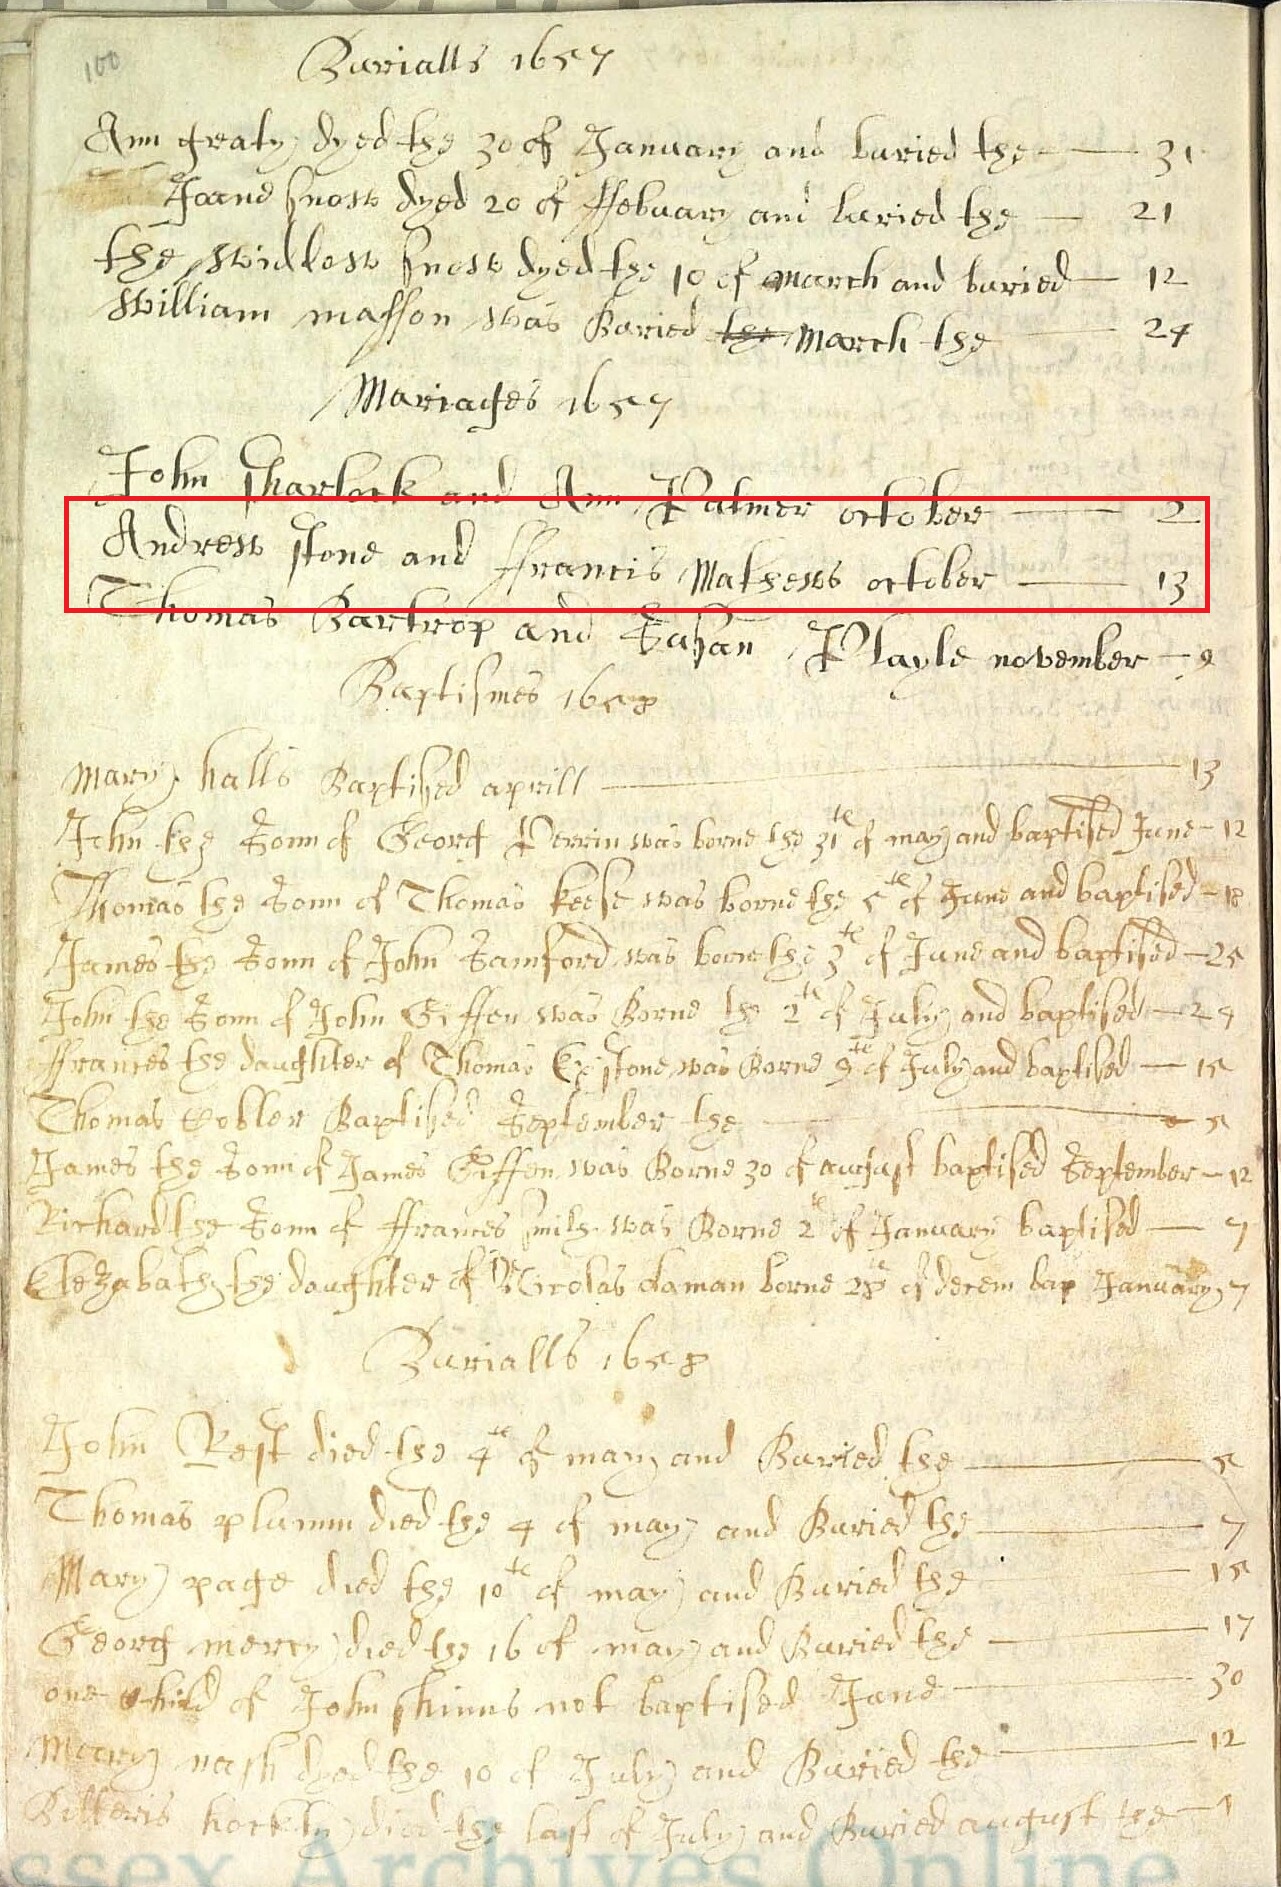 100
Burialls 1657
Ann graty dyed the 30 of January and buried the 31
Joane snow dyed 20 of ffebuary and buried the 21
the widdow snow dyed the 10 of march and buried 12
William masson was Buried the March the 24
Mariages 1657
John Sharlock and Ann Palmer october 2
Andrew stone and ffrancis Mathews october 13
Thomas Bartrop and Susan Playle november 9
Baptismes 1658
Mary halls Baptised aprill 13
John the Sonn of Georg Perrin was borne the 31 te of may and baptised June 12
Thomas the Sonn of Thomas keese was borne the 5 te of June and baptised 18
James the Sonn of John Samford was borne the 3 te of June and baptised 25
John the Sonn of John Giffen was Borne the 2 te of July and baptised 24
ffrances the daughter of Thomas was Borne 9 te of July and baptised 15
Thomas Cobler Baptised September the 5
James the Sonn of James Giffen was Borne 30 of august baptised September 12
Richard the Sonn of ffrances smith was Borne 2 te of January baptised 7
Elezabath the daughter of Nicolas daman borne 28 te of decem bap January 7
Burialls 1658
John Rest died the 4 te of may and Buried the 5
Thomas plumm died the 4 of may and Buried the 7
Mary page died the 10 te of may and Buried the 15
Georg mercy died the 16 of may and Buried the 17
one child of John skinns not baptised June 30
Marey nash dyed the 10 of July and Buried the 12
hockly died the last of July and Buried august the 1
ssex Archives Online